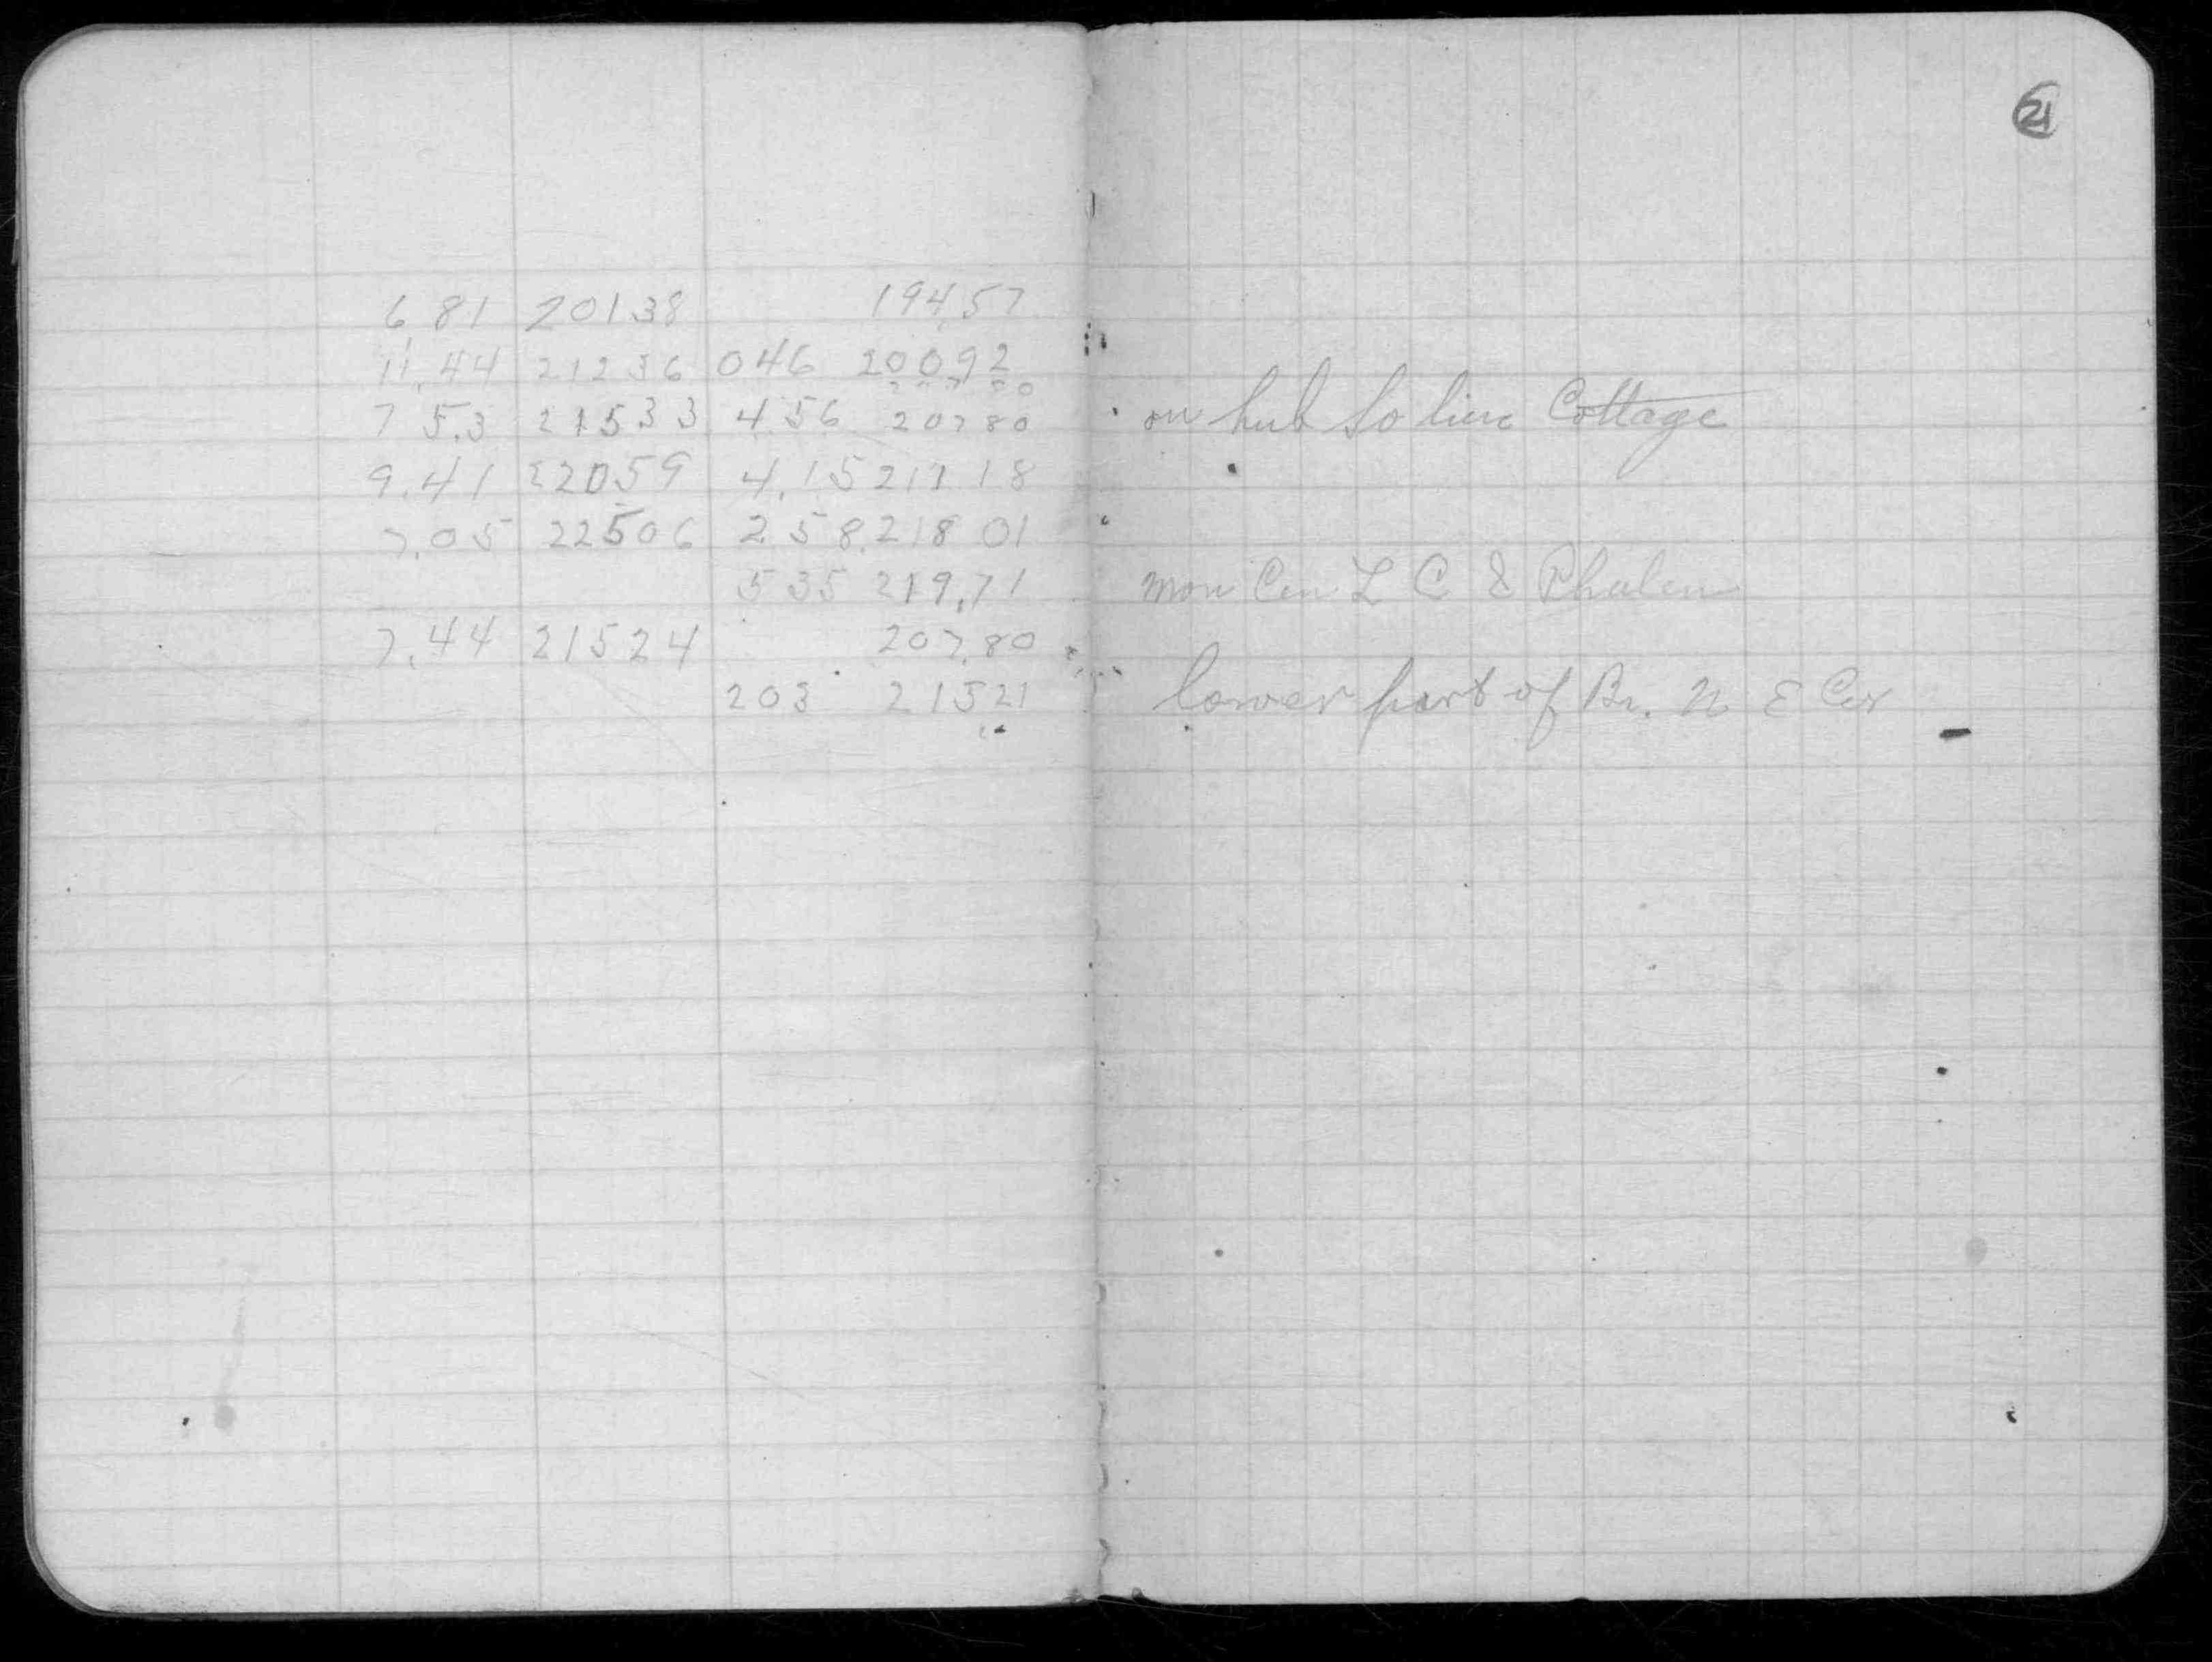 21
6 81 20138 194.57
11.44 21236 046 20092
7 5.3 21533 4.56 20780 on hub So line Cottage
9.41 22059 4.15 211 18
7.05 22506 2.58. 218 01
5 35 219.71 Mon Cen L C & Phalen
7.44 21524 207.80
203 21521 lower part of Br. N E Cor